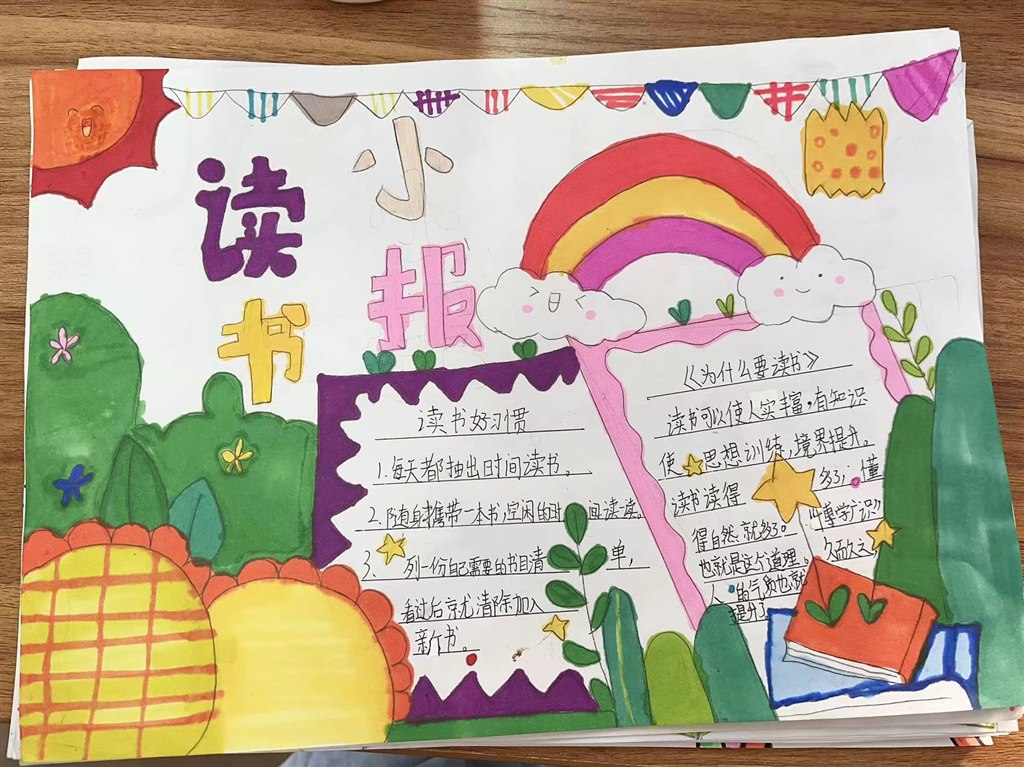 读书
小报
读书好习惯
1.每天都抽出时间读书。
2.随身携带一本书,空闲的时间读读。
3.列一份自己需要的书目清单,
看过后就清除加入
新书。
《为什么要读书》
读书可以使人实丰富,有知识
使思想训练,境界提升。
读书读得多了,懂
得自然就多了。
也就是这个道理。久而久之
人的气质也就
提升了